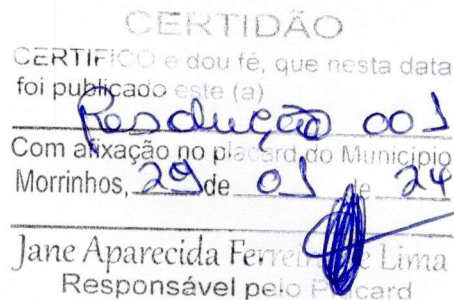 CERTIDÃO
CERTIFICO e dou fé, que nesta data
foi publicado este (a)
Resolução 001
Com afixação no placard do Município
Morrinhos, 29 de 01 de 24
Jane Aparecida Ferreira de Lima
Responsável pelo Placard